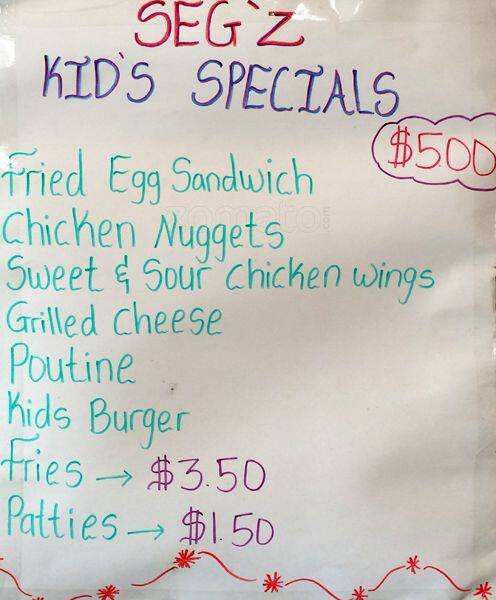 SEG'Z
KID'S SPECIALS
$5.00
Fried Egg Sandwich
Chicken Nuggets
zomato.com
Sweet & Sour Chicken Wings
Grilled Cheese
Poutine
Kids Burger
Fries → $3.50
Patties → $1.50